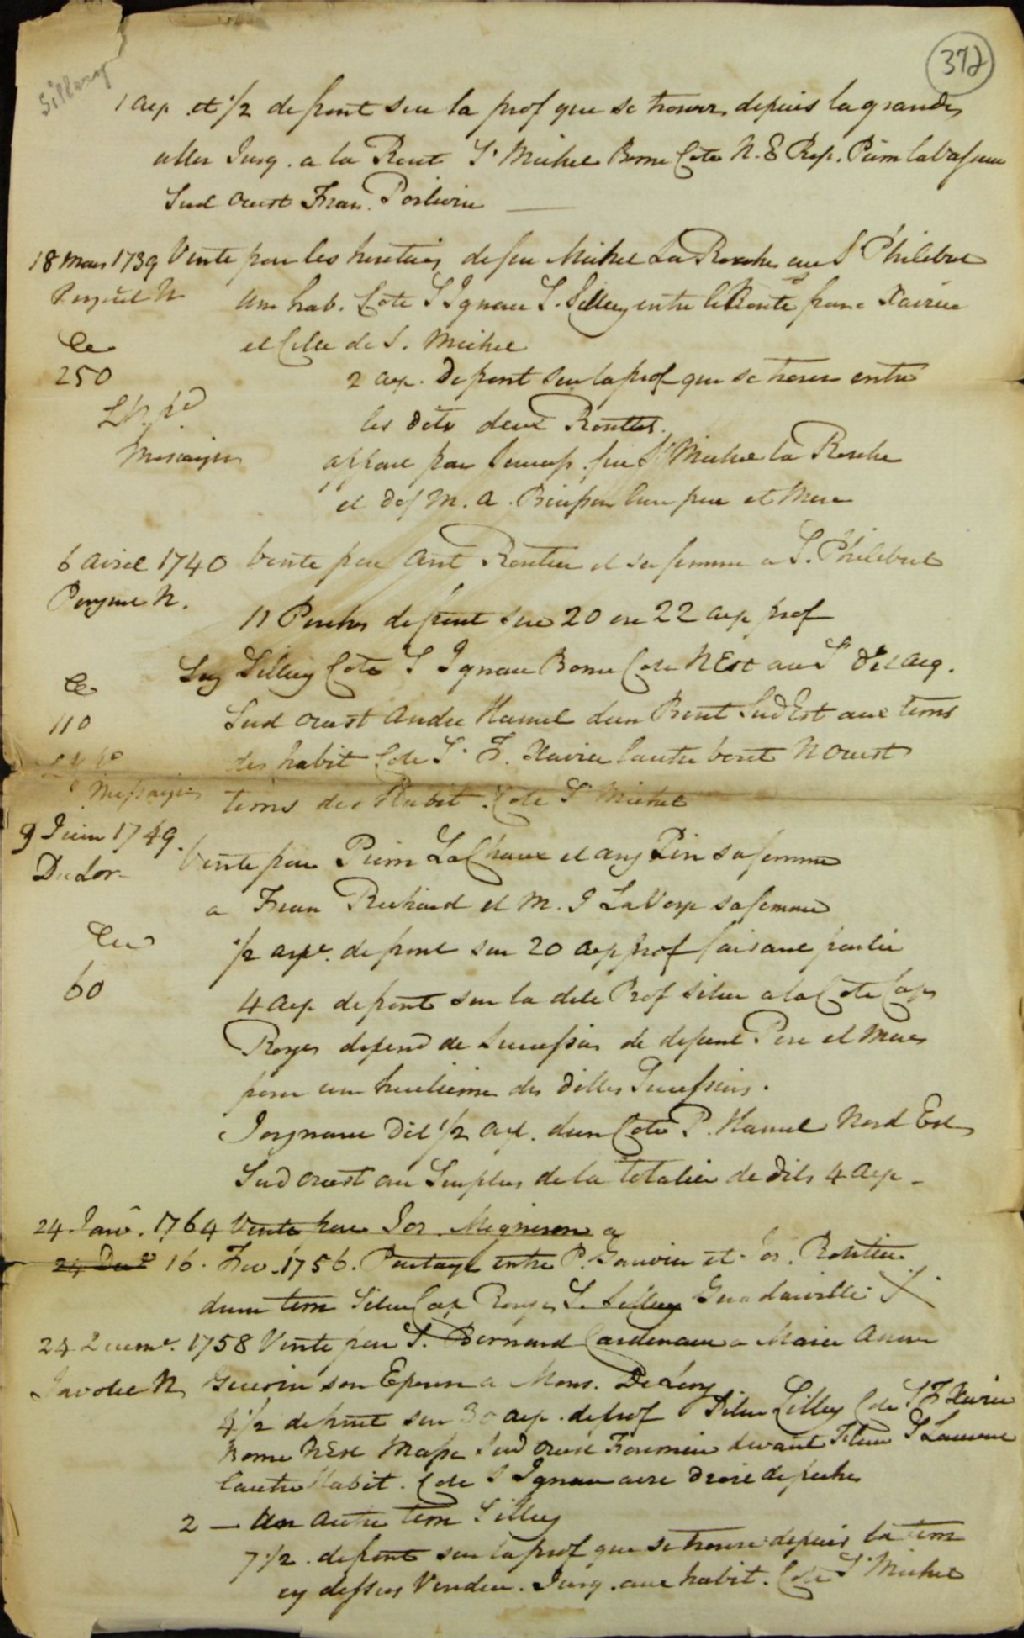 372
Sillery
1 arp. et 1/2 de front sur la prof que se trouve depuis la grande
allee Jusq. a la Rout St Michel Borne Cote N. E Rep. Pierre
Sud ouest Fran. Poitevin
18 mars 1739 Vente par les heritiers de feu Michel La Roche au S Philibert
une hab. Cote S Ignace S. Sillery entre la Route franc Xavier
et Celle de S. Michel
de
250
2 arp. de front sur la prof que se trouve entre
les dits deux Routtes.
appart par Success. feu St Michel la Roche
et def M. A. leur pere et Mere
6 avril 1740 Vente par Ant Routier et sa femme a S. Philibert
11 Perches de front sur 20 ou 22 arp prof
Sillery Cote S Ignace Borne Cote N Est au Sr
de
110
Sud ouest Andre Hamel dun Bout Sud Est aux terres
des habit Cote S. F. Xavier lautre bout N Ouest
terres des Habit. Cote St Michel
9 Juin 1749. Vente par Pierre et Ang Pin sa femme
a Fran Richard et M. J sa femme
1/2 arp. de front sur 20 arp prof faisant partie
60
4 arp de front sur la dite Prof situe a la Cote Cap
Rouge depend de Succession de defunt Pere et Mere
pour un huitieme des dittes Successions.
Joignant dit 1/2 arp. dun Cote P. Hamel Nord Est
Sud ouest au Surplus de la totalité de dits 4 arp -
24 Janv. 1764 Vente par Jos. Migneron a
16. Fev. 1756. Partage entre P. Gauvin et Jos. Routier
dune terre Situe Cap Rouge S. Sillery Gaudarville
24 1758 Vente par S. Bernard Cardeneau a Marie Anne
Guerin son Epouse a Mons. De Léry
4 1/2 de front sur 30 arp. de prof Situe Sillery Cote S F Xavier
Borne N Est Sud ouest Fournier devant S Laurent
lautre Habit. Cote S Ignace avec droit de peche
2 — Un autre terre Sillery
7 1/2 de front sur la prof que se trouve depuis la terre
cy dessus Vendue. Jusq. aux habit. Cote St Michel